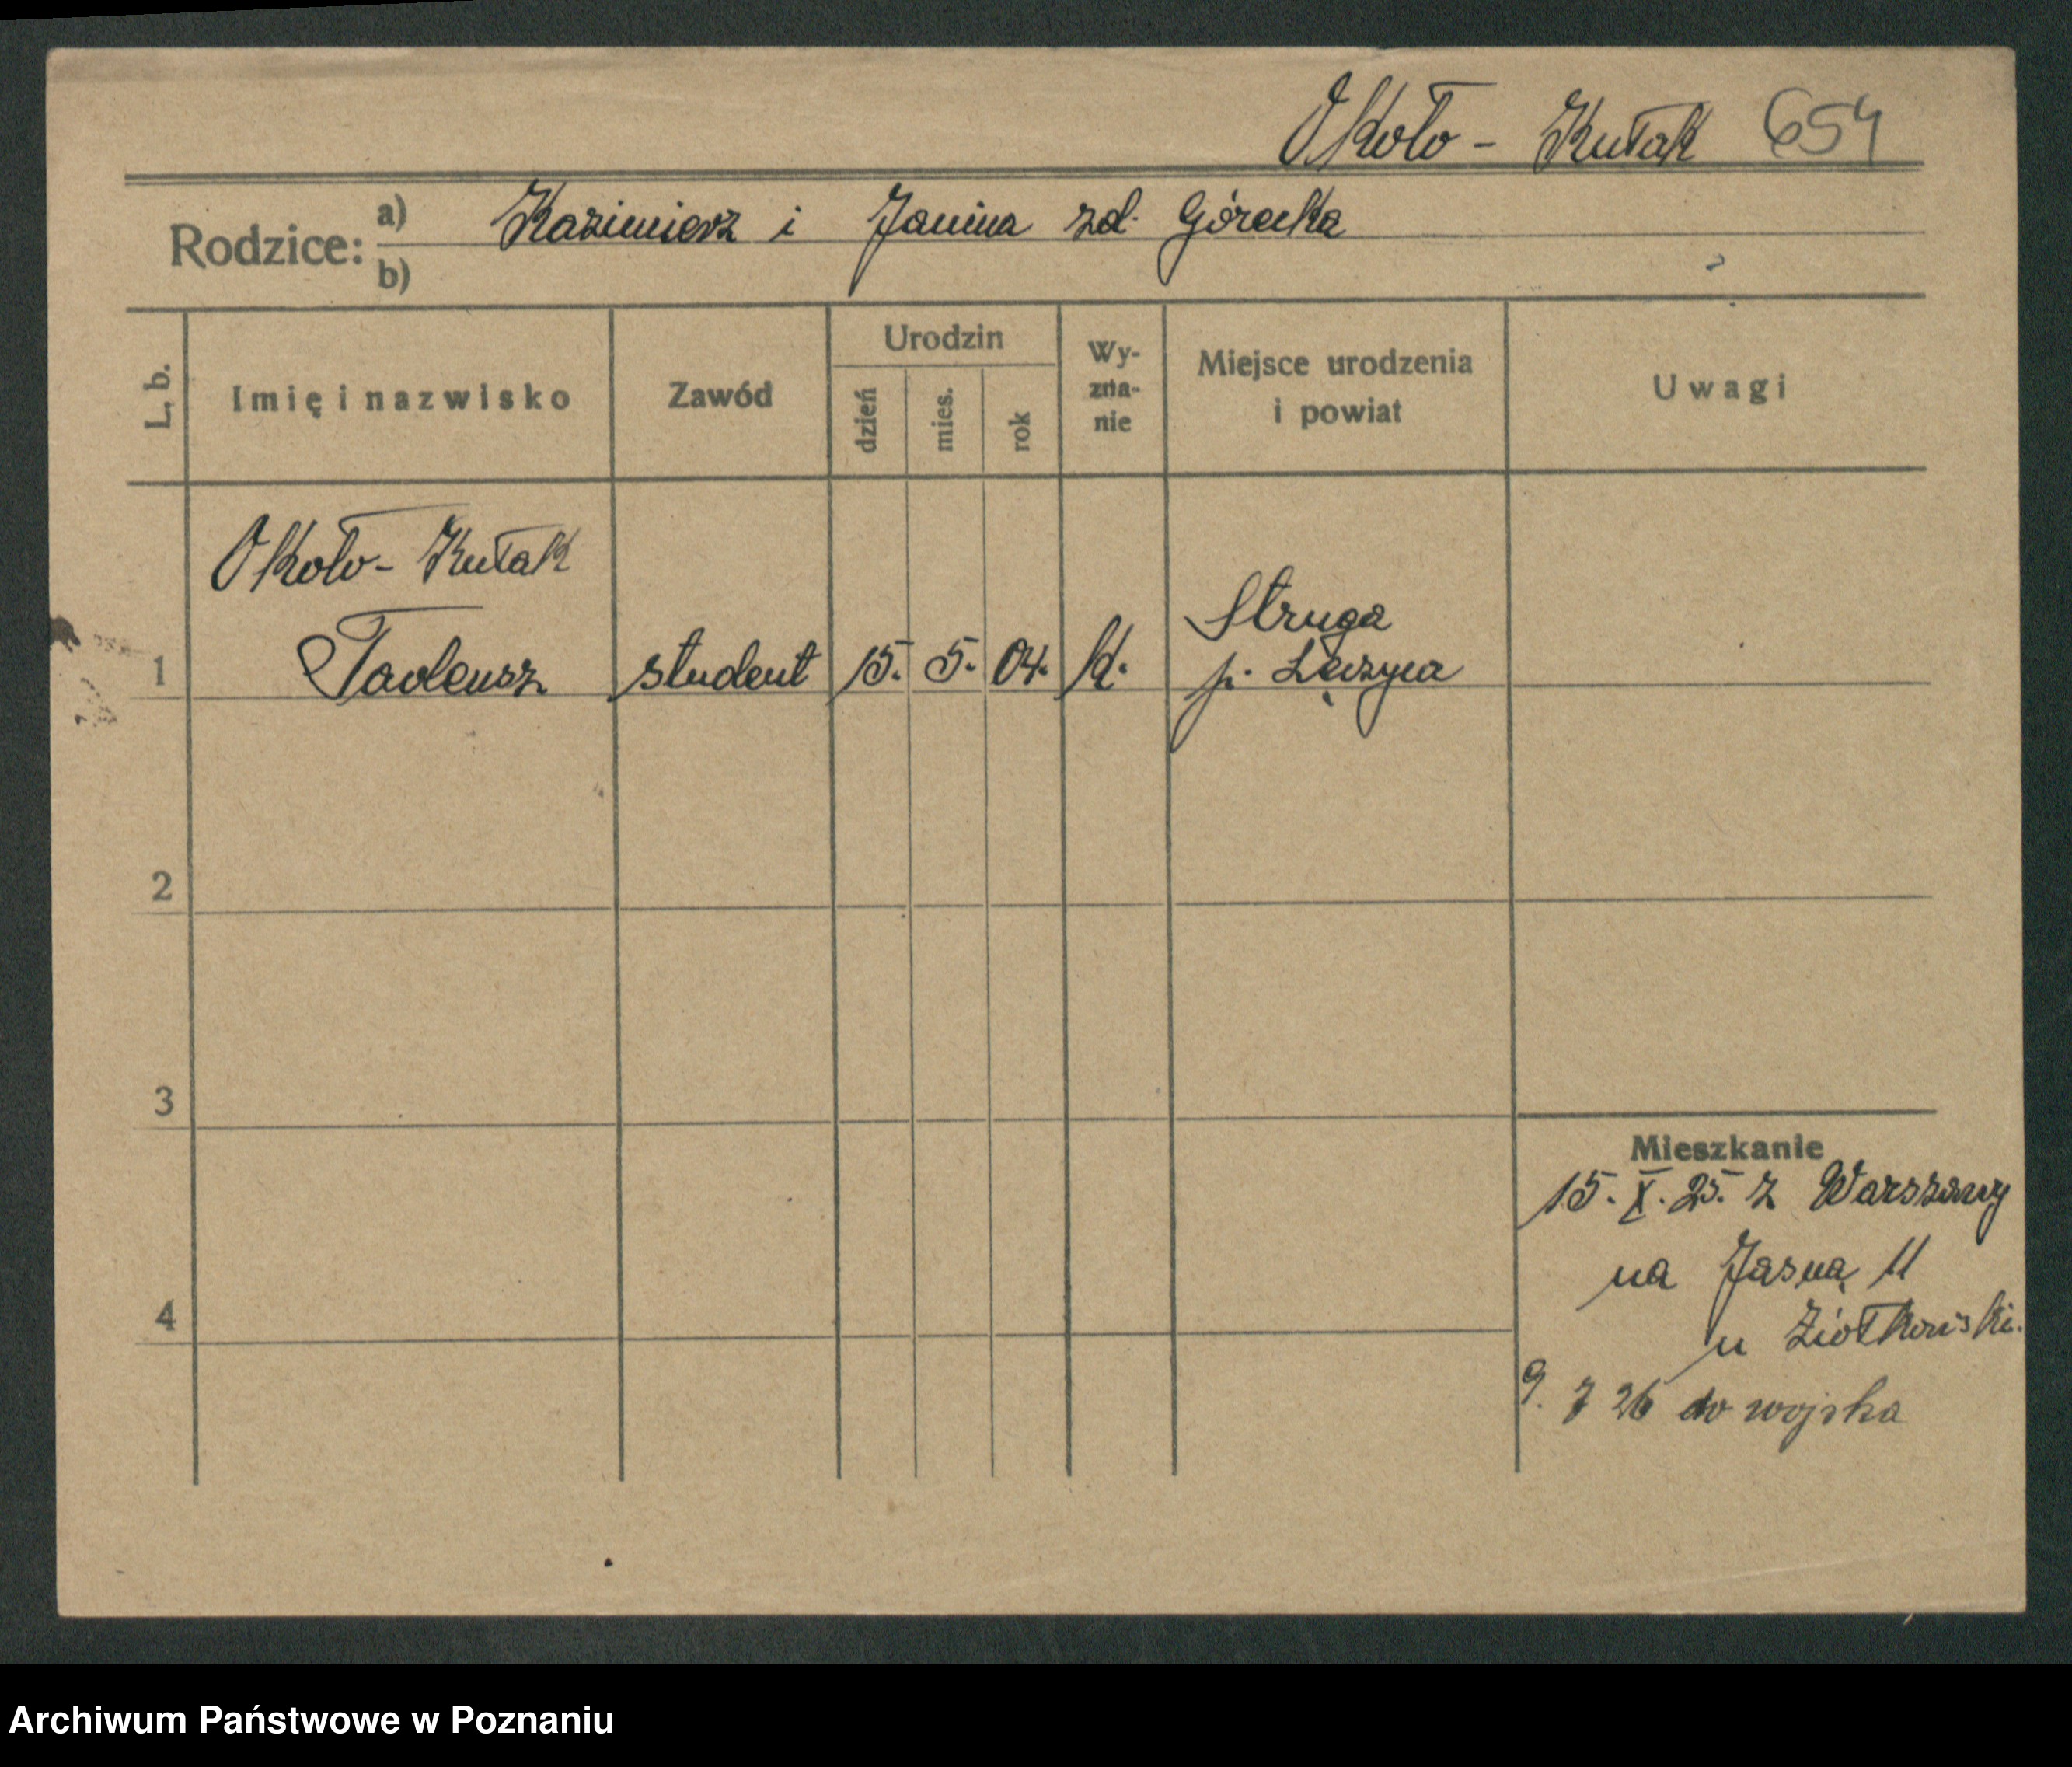 Około - Kułak 654
Rodzice: a) Kazimierz i Janina zd. Górecka
b)
L. b. Imię i nazwisko Zawód Urodzin dzień mies. rok Wy-zna-nie Miejsce urodzenia i powiat Uwagi
Około - Kułak
1 Tadeusz student 15. 5. 04. k. Struga
p. Łęczyca
2
3
Mieszkanie
15. X. 25. z Warszawy
na Jasną 11
u Ziółkowski.
4
9. 7 26 do wojska
Archiwum Państwowe w Poznaniu